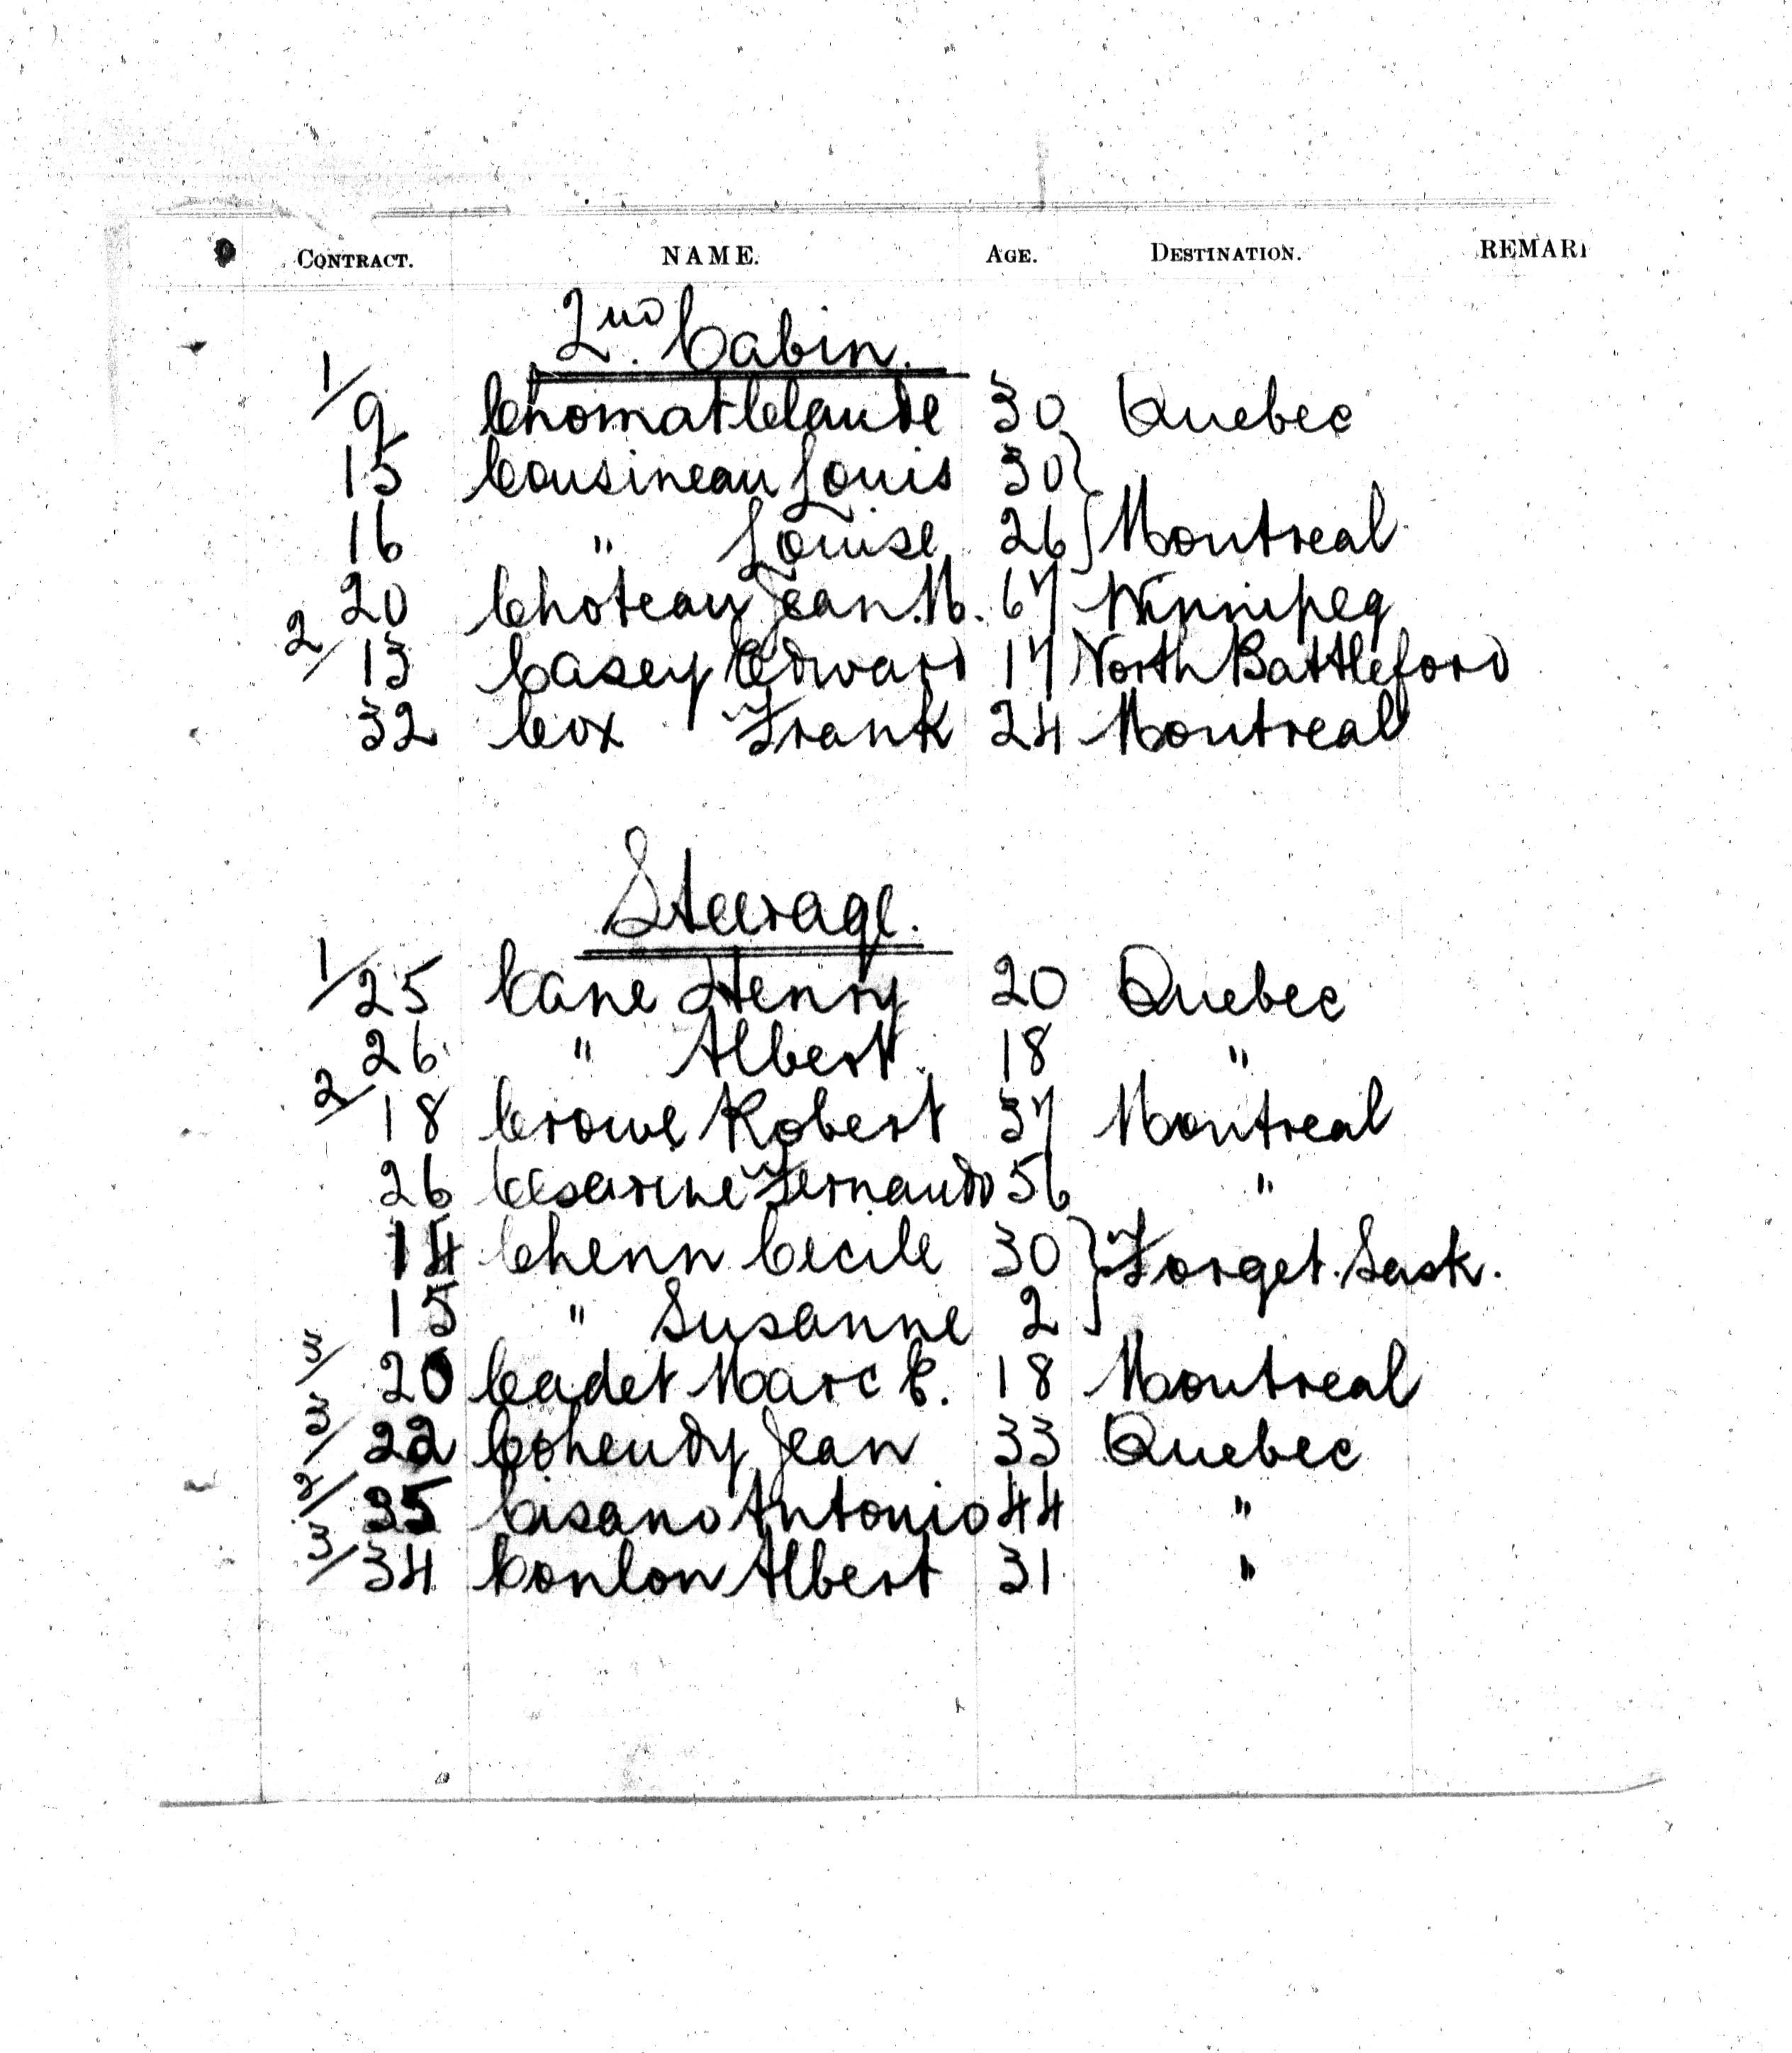 CONTRACT. NAME. AGE. DESTINATION. REMAR
2nd. Cabin.
1/9 Chomat Claude 30 Quebec
15 Cousineau Louis 30 }
16 " Louise 26 } Montreal
20 Choteau Jean M. 67 Winnipeg
2/13 Casey Edward 17 North Battleford
32 Cox Frank 24 Montreal
Steerage.
1/25 Cane Henry 20 Quebec
26 " Albert 18 "
2/18 Crowe Robert 37 Montreal
26 Cesarine Fernando 56 "
14 Chenn Cecile 30 } Forget. Sask.
15 " Susanne 2 }
3/20 Cadet Marc C. 18 Montreal
3/22 Cohendy Jean 33 Quebec
2/35 Cisano Antonio 44 "
3/34 Conlon Albert 31 "